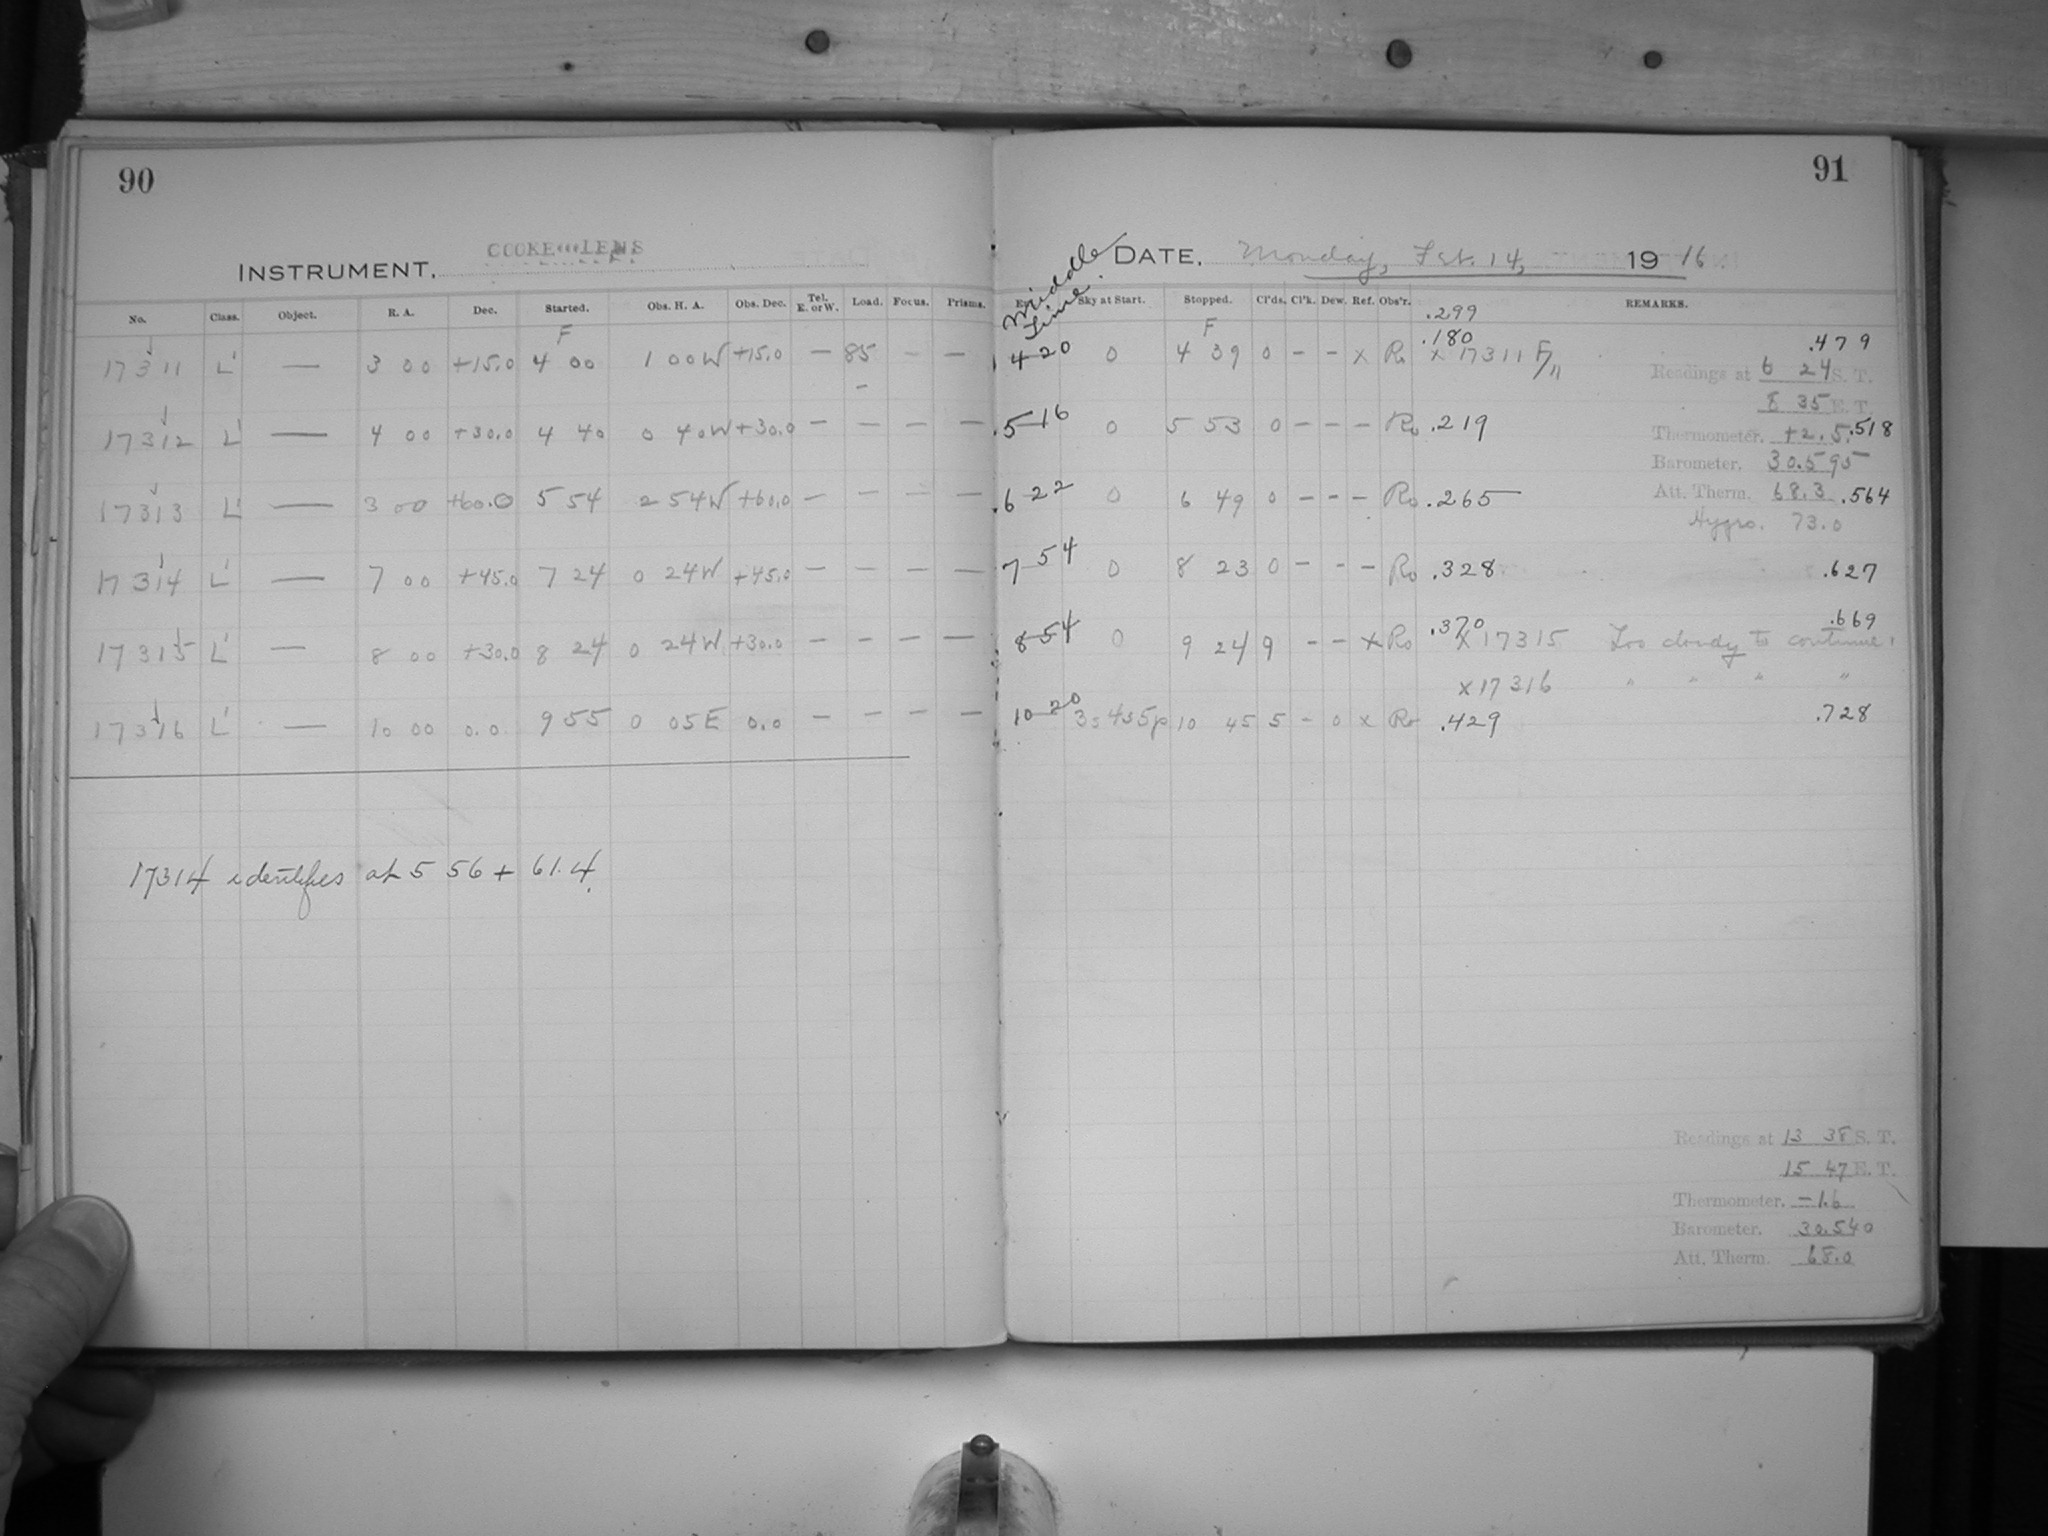 90
INSTRUMENT. COOKE LENS
No. Class. Object. R. A. Dec. Started. Obs. H. A. Obs. Dec. Tel. E. or W. Load. Focus. Prisms.
F
17311 L' — 3 00 +15.0 4 00 1 00W +15.0 — 85 — —
17312 L' — 4 00 +30.0 4 40 0 40W +30.0 — — — —
17313 L' — 3 00 +60.0 5 54 2 54W +60.0 — — — —
17314 L' — 7 00 +45.0 7 24 0 24W +45.0 — — — —
17315 L' — 8 00 +30.0 8 24 0 24W +30.0 — — — —
17316 L' — 10 00 0.0 9 55 0 05E 0.0 — — — —
17314 identifies at 5 56 + 61.4
91
DATE. Monday, Feb. 14, 1916.
Middle Time.
Sky at Start. Stopped. Cl'ds. Cl'k. Dew. Ref. Obs'r. REMARKS.
.299
F .180 .479
4 20 0 4 39 0 - - x Ro x 17311 F/11
Readings at 6 24 S. T.
8 35 E. T.
5 16 0 5 53 0 - - - Ro .219 .518
Thermometer. +2.5
Barometer. 30.595
6 22 0 6 49 0 - - - Ro .265 .564
Att. Therm. 68.3
Hygro. 73.0
7 54 0 8 23 0 - - - Ro .328 .627
.370 .669
8 54 0 9 24 9 - - x Ro x 17315 Too cloudy to continue.
x 17316 " " " "
10 20 3s 4s5p 10 45 5 - 0 x Ro .429 .728
Readings at 13 38 S. T.
15 47 E. T.
Thermometer. -1.6
Barometer. 30.540
Att. Therm. 68.0